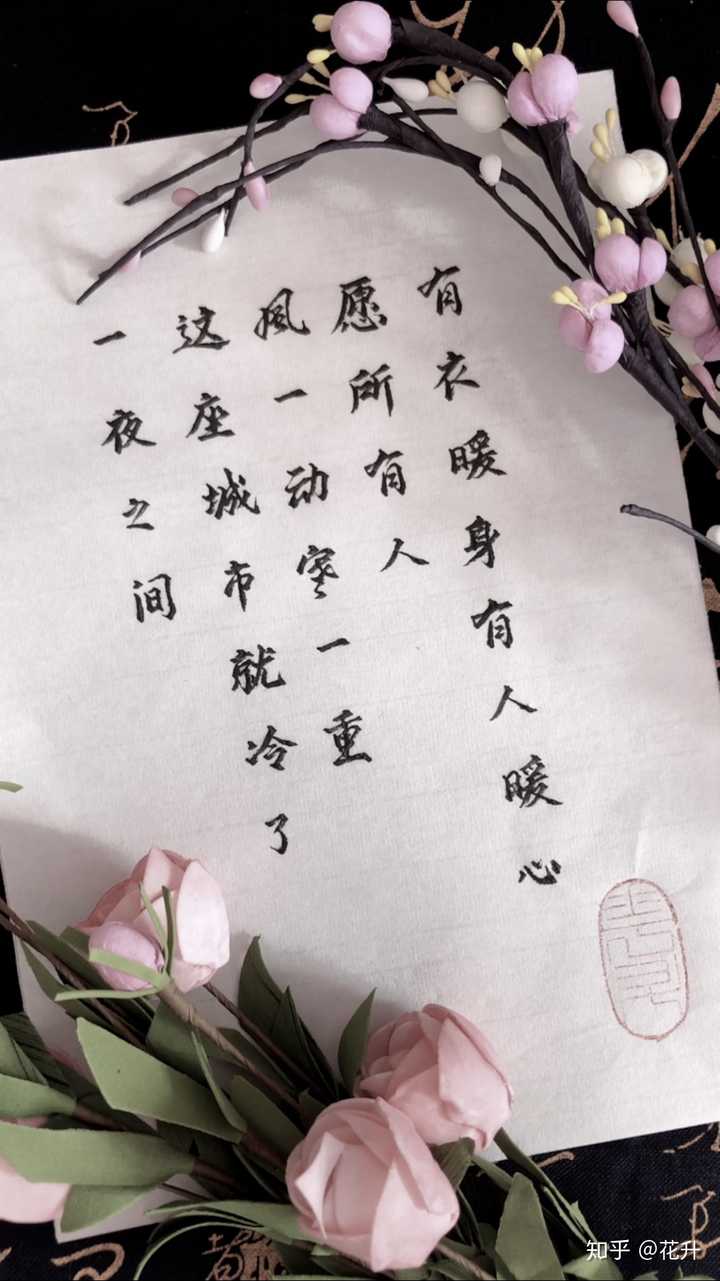 一夜之间
这座城市就冷了
风一动寒一重
愿所有人
有衣暖身有人暖心
知乎 @花升